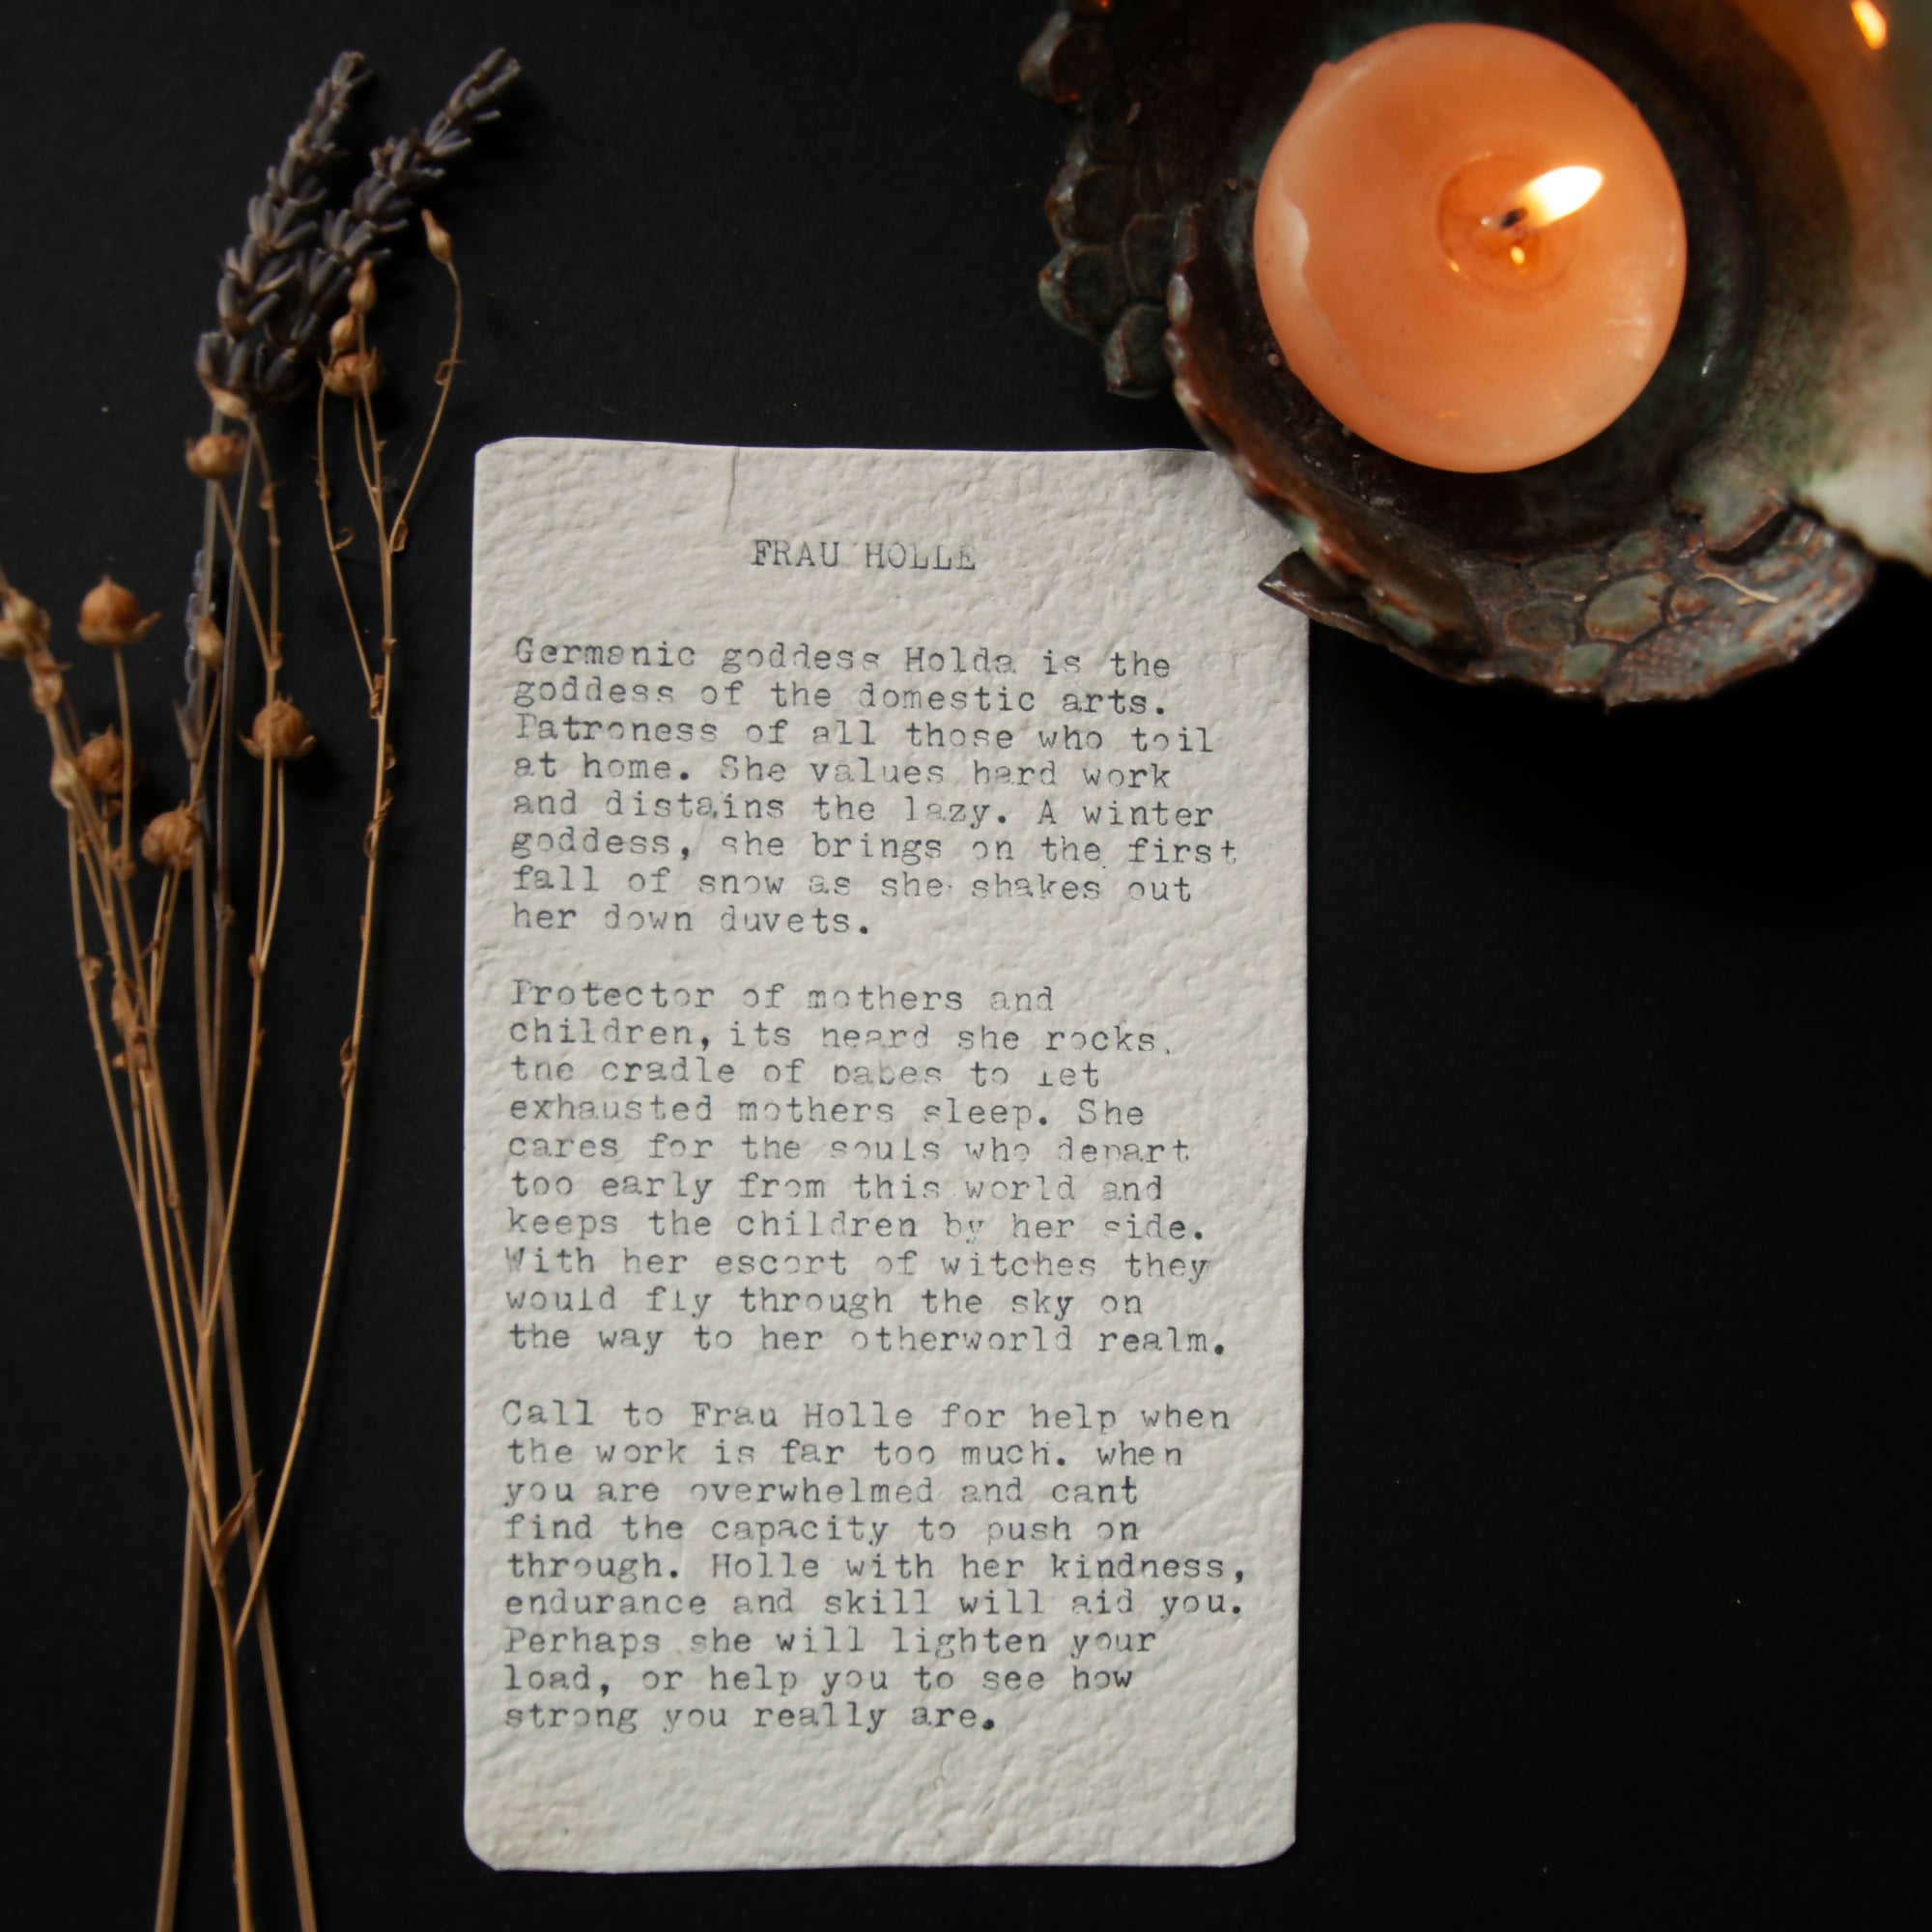 FRAU HOLLE
Germanic goddess Holda is the
goddess of the domestic arts.
Patroness of all those who toil
at home. She values hard work
and distains the lazy. A winter
goddess, she brings on the first
fall of snow as she shakes out
her down duvets.
Protector of mothers and
children, its heard she rocks.
the cradle of babes to let
exhausted mothers sleep. She
cares for the souls who depart
too early from this world and
keeps the children by her side.
With her escort of witches they
would fly through the sky on
the way to her otherworld realm.
Call to Frau Holle for help when
the work is far too much. when
you are overwhelmed and cant
find the capacity to push on
through. Holle with her kindness,
endurance and skill will aid you.
Perhaps she will lighten your
load, or help you to see how
strong you really are.